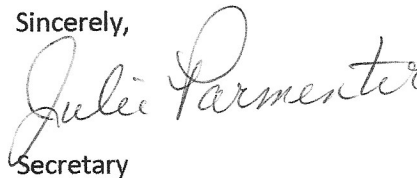 Sincerely,
Julie Parmenter
Secretary